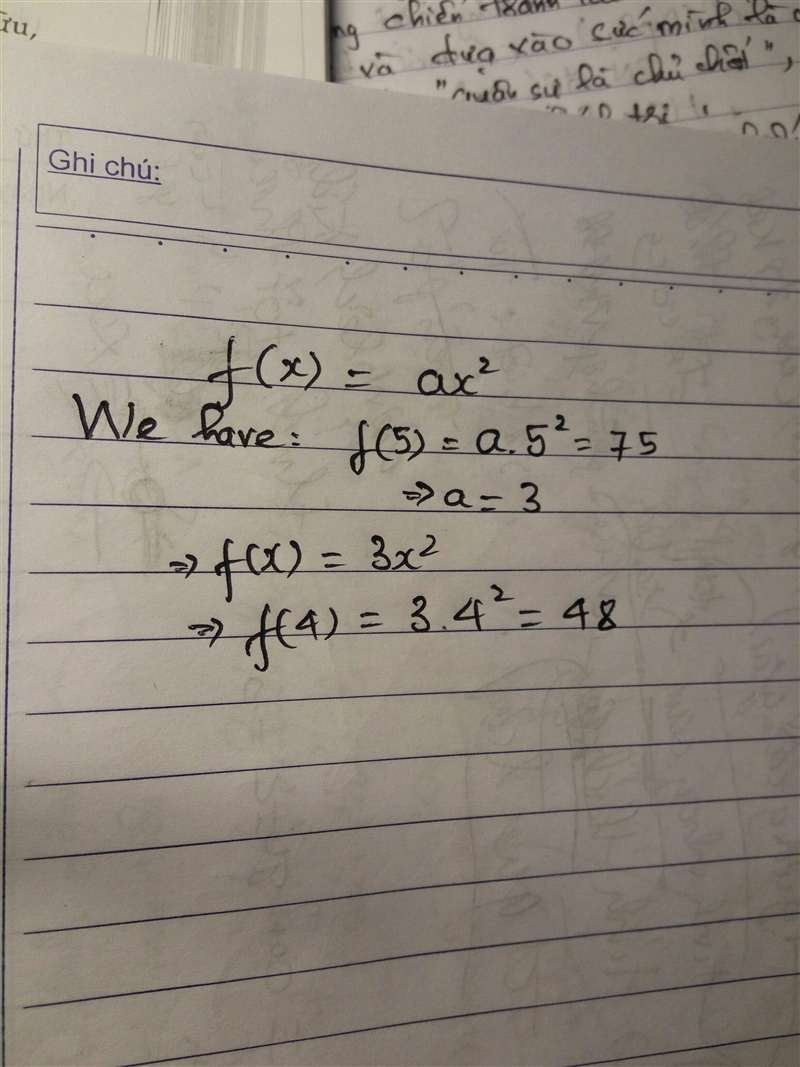 ữu,
chiến tranh
và dựa vào sức mình là c
sự là chủ chốt",
Ghi chú:
f(x) = ax²
We have: f(5) = a.5² = 75
⇒ a = 3
⇒ f(x) = 3x²
⇒ f(4) = 3.4² = 48